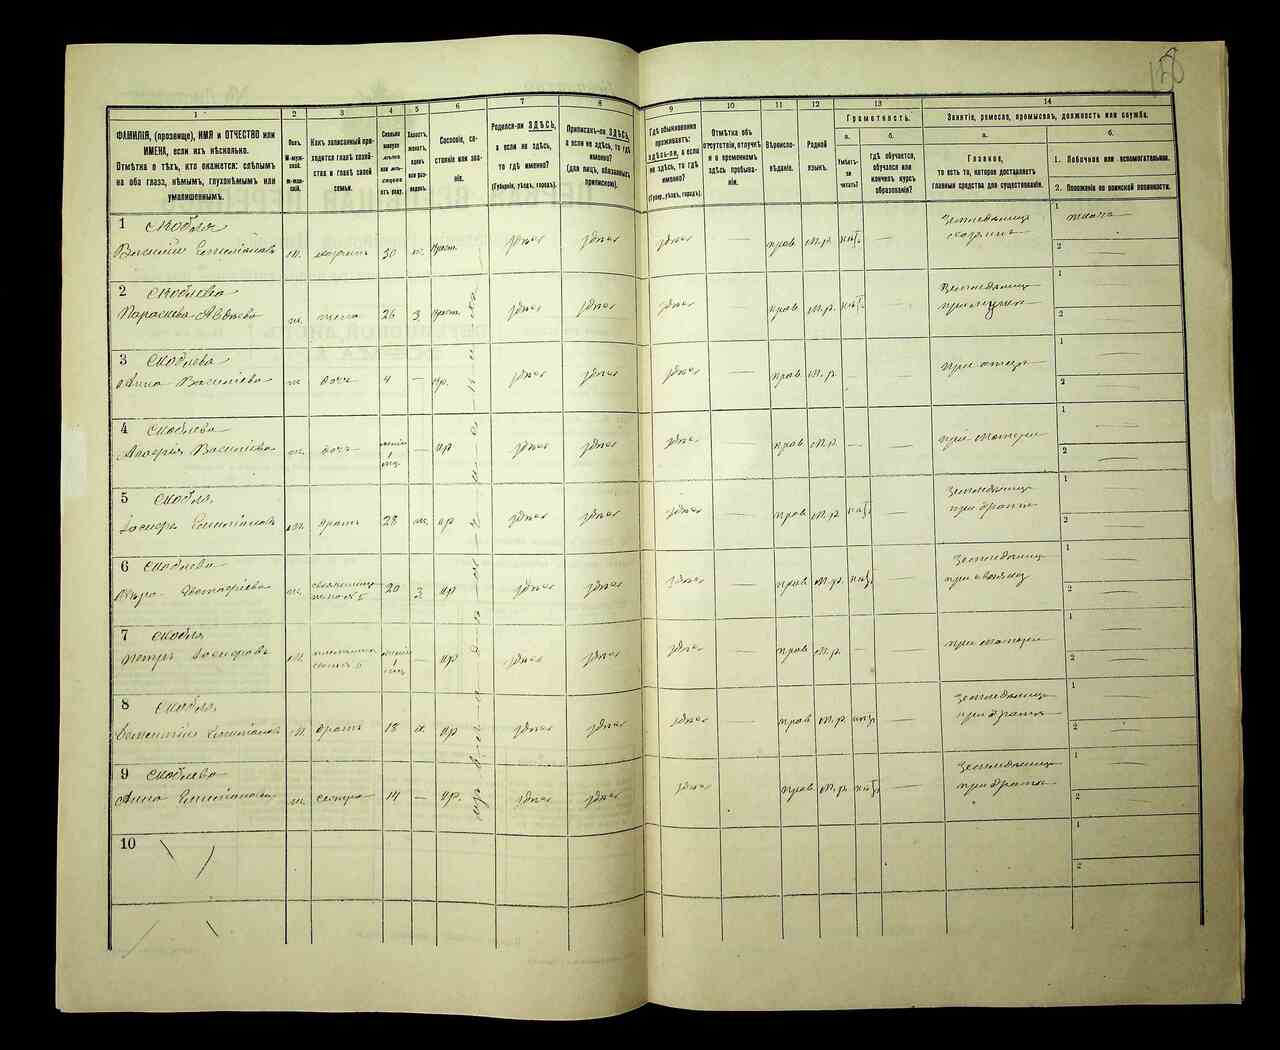 158
1 2 3 4 5 6 7 8 9 10 11 12 13 14
ФАМИЛІЯ, (прозвище), ИМЯ и ОТЧЕСТВО или
ИМЕНА, если ихъ нѣсколько.
Отмѣтка о тѣхъ, кто окажется: слѣпымъ
на оба глаза, нѣмымъ, глухонѣмымъ или
умалишеннымъ.
Полъ.
М-муж-
ской.
Ж-жен-
скій.
Какъ записанный при-
ходится главѣ хозяй-
ства и главѣ своей
семьи.
Сколько
минуло
лѣтъ
или мѣ-
сяцевъ
отъ роду.
Холостъ,
женатъ,
вдовъ
или раз-
веденъ.
Сословіе, со-
стояніе или зва-
ніе.
Родился-ли ЗДѢСЬ,
а если не здѣсь,
то гдѣ именно?
(Губернія, уѣздъ, городъ).
Приписанъ-ли ЗДѢСЬ,
а если не здѣсь, то гдѣ
именно?
(для лицъ, обязанныхъ
припискою).
Гдѣ обыкновенно
проживаетъ:
ЗДѢСЬ-ли, а если
не здѣсь, то гдѣ
именно?
(Губер., уѣздъ, городъ).
Отмѣтка объ
отсутствіи, отлучкѣ
и о временномъ
здѣсь пребыва-
ніи.
Вѣроиспо-
вѣданіе.
Родной
языкъ.
Грамотность.
а.
Умѣетъ-
ли
читать?
б.
Гдѣ обучается,
обучался или
кончилъ курсъ
образованія?
Занятіе, ремесло, промыселъ, должность или служба.
а.
Главное,
то есть то, которое доставляетъ
главныя средства для существованія.
б.
1. Побочное или вспомогательное.
2. Положеніе по воинской повинности.
1 Скобля
Василій Емиліановъ м. хозяинъ 30 ж. крест. здѣсь здѣсь здѣсь — прав. м.р. нѣтъ —
Земледѣлецъ
хозяинъ
1
2
2 Скоблева
Параскева Авдѣева ж. жена 26 з крест. здѣсь здѣсь здѣсь — прав. м.р. нѣтъ —
при мужѣ
1 —
2 —
3 Скоблева
Анна Василіева ж. дочь 4 — кр. здѣсь здѣсь здѣсь — прав. м.р. — —
при отцѣ
1 —
2 —
4 Скоблева
Василіева ж. дочь — кр здѣсь здѣсь здѣсь — прав. м.р. — —
при матери
1 —
2 —
5 Скобля
Іосифъ Емиліановъ м. братъ 28 ж. кр здѣсь здѣсь здѣсь — прав. м.р. нѣтъ —
при братѣ
1 —
2 —
6 Скоблева
ж. жена № 5 20 з кр здѣсь здѣсь здѣсь — прав. м.р. нѣтъ —
1 —
2 —
7 Скобля
Петръ Іосифовъ м. — кр здѣсь здѣсь здѣсь — прав. м.р. — —
при матери
1 —
2 —
8 Скобля
Емиліановъ м. братъ 18 х. кр здѣсь здѣсь здѣсь — прав. м.р. нѣтъ —
при братѣ
1 —
2 —
9 Скоблева
Анна Емиліанова ж. сестра 14 — кр. здѣсь здѣсь здѣсь — прав. м.р. нѣтъ —
при братѣ
1 —
2 —
10
1
2